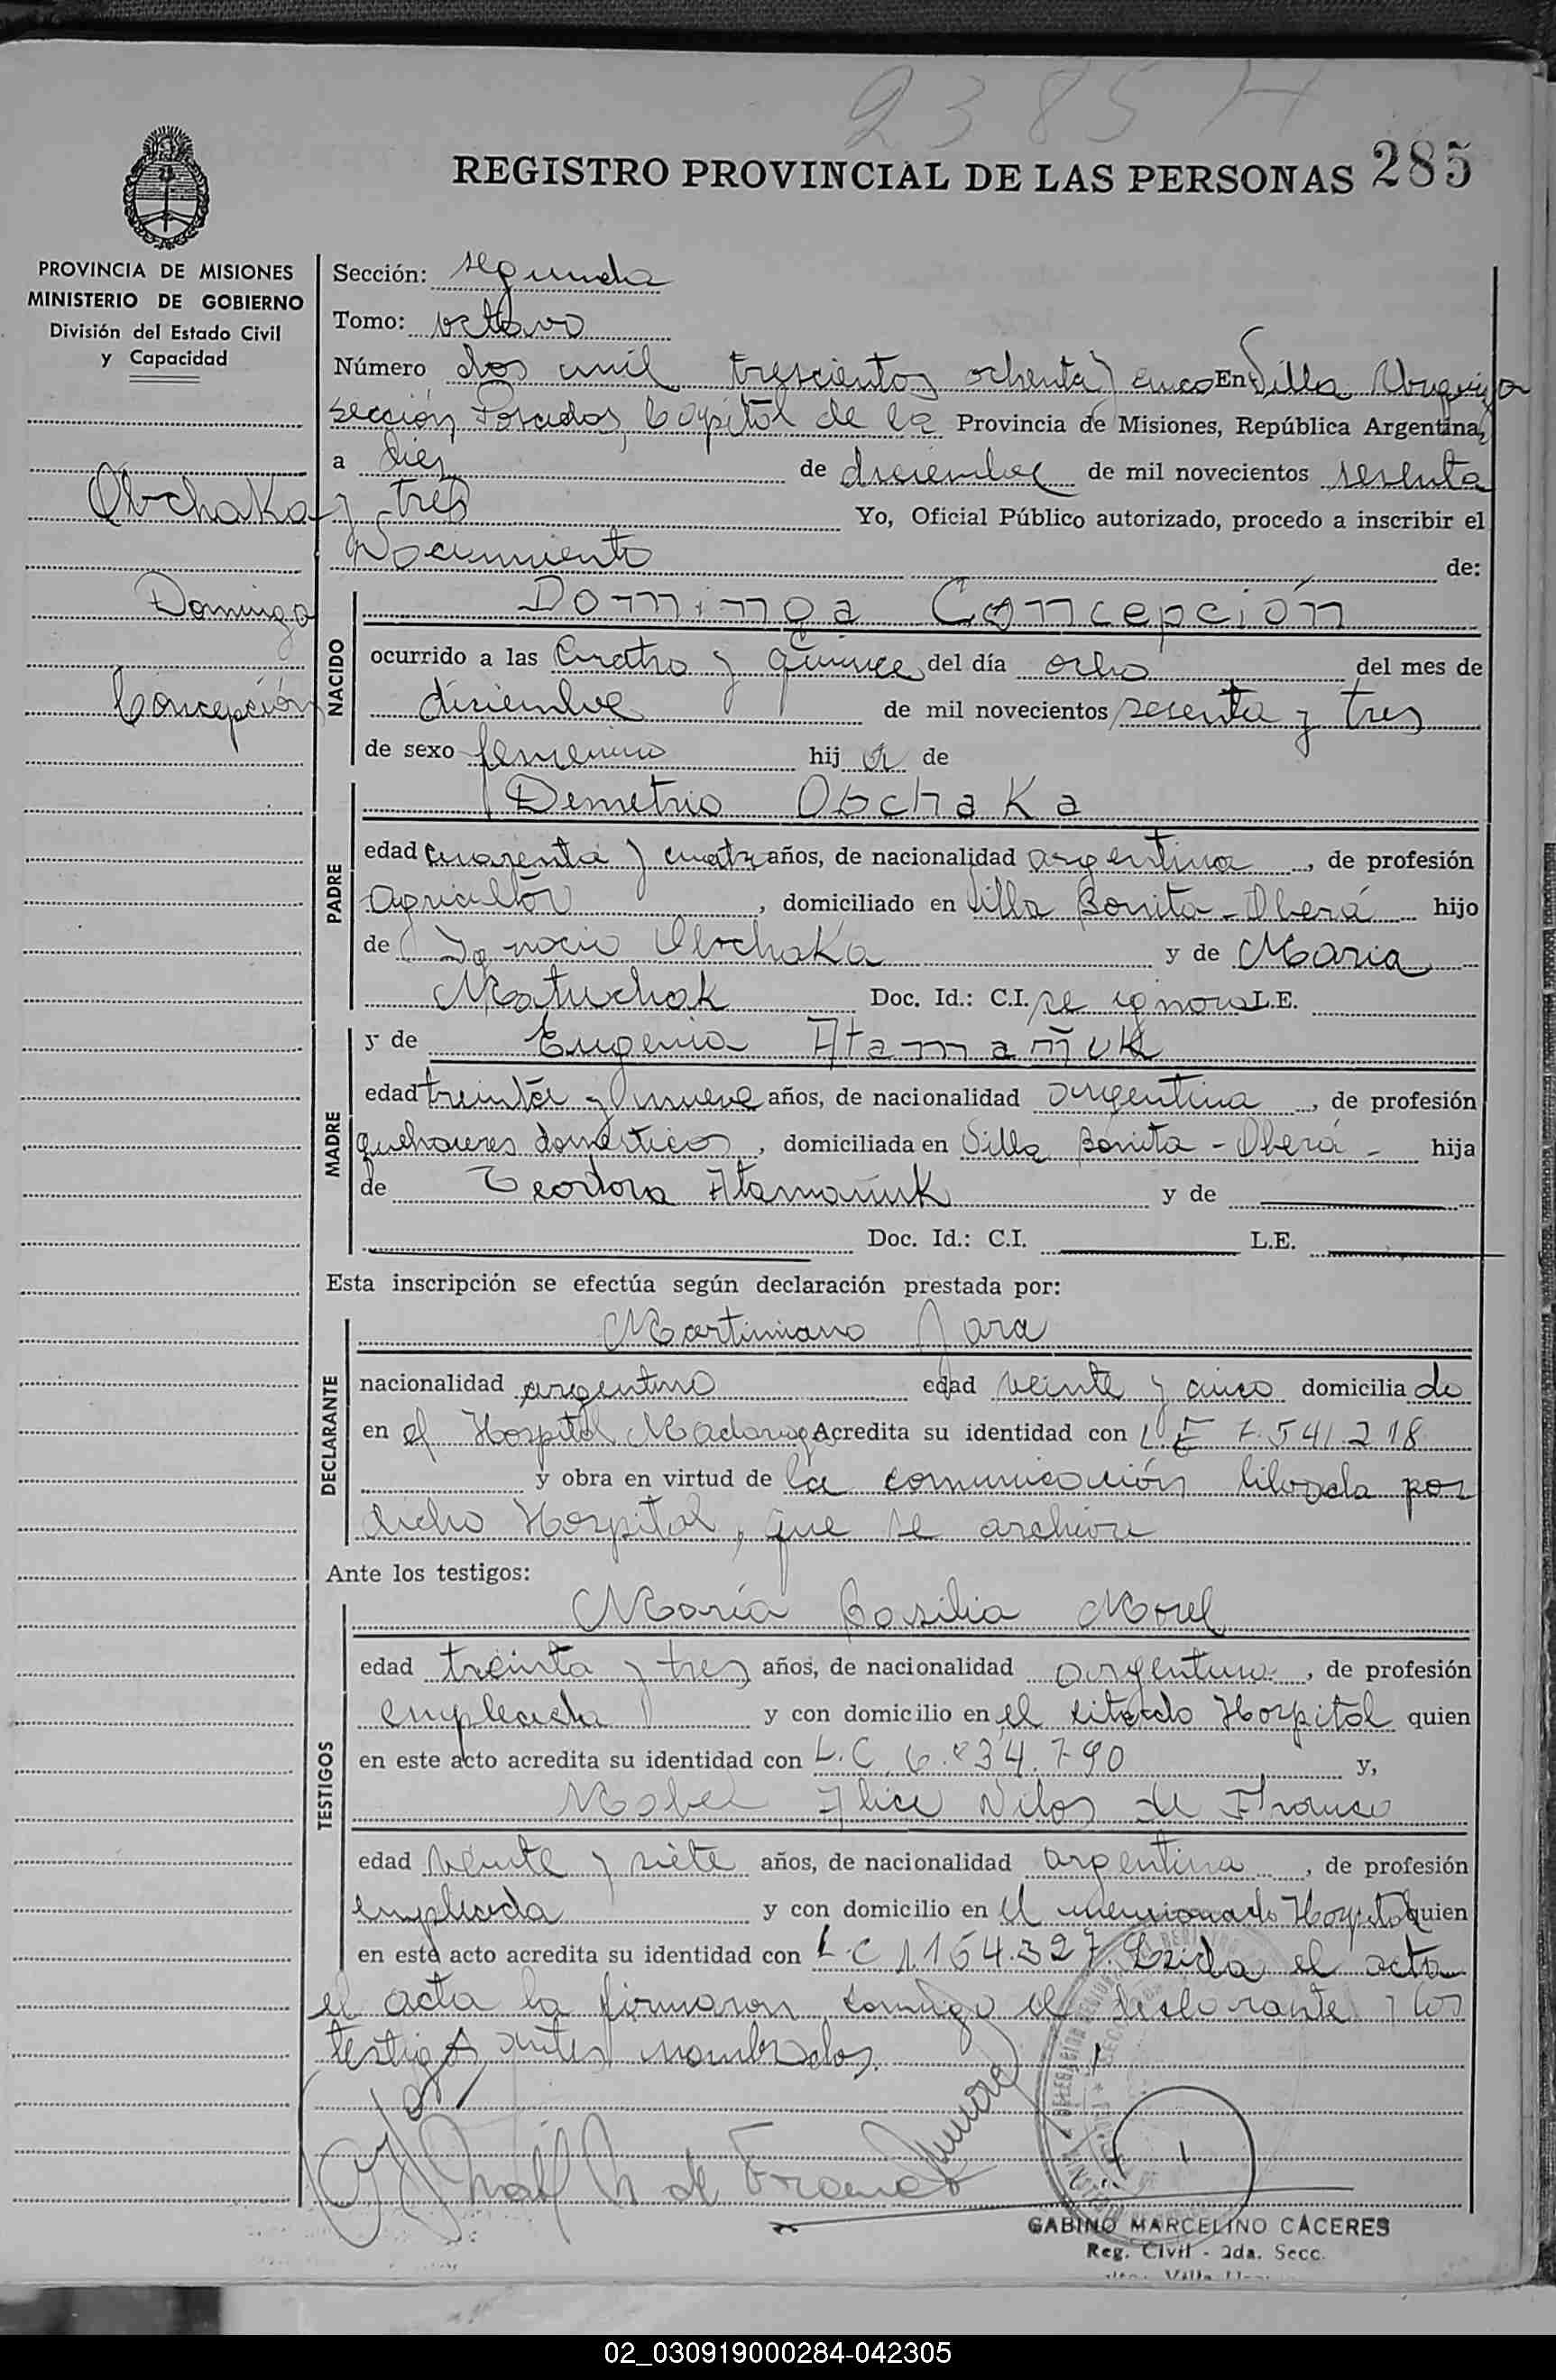 2385 H
REGISTRO PROVINCIAL DE LAS PERSONAS 285
PROVINCIA DE MISIONES
MINISTERIO DE GOBIERNO
División del Estado Civil
y Capacidad
Obchaka
Dominga
Concepción
Sección: segunda
Tomo: octavo
Número dos mil trescientos ochenta y cinco En Villa Urquiza
sección Posadas, Capital de la Provincia de Misiones, República Argentina,
a diez de diciembre de mil novecientos sesenta
y tres Yo, Oficial Público autorizado, procedo a inscribir el
Nacimiento de:
NACIDO
Dominga Concepción
ocurrido a las cuatro y quince del día ocho del mes de
diciembre de mil novecientos sesenta y tres
de sexo femenino hij a de
PADRE
Demetrio Obchaka
edad cuarenta y cuatro años, de nacionalidad argentina, de profesión
agricultor, domiciliado en Villa Bonita - Oberá hijo
de Ignacio Obchaka y de Maria
Matuchak Doc. Id.: C.I. se ignora L.E.
MADRE
y de Eugenia Atamañuk
edad treinta y nueve años, de nacionalidad argentina, de profesión
quehaceres domésticos, domiciliada en Villa Bonita - Oberá - hija
de Teodora Atamañuk y de
Doc. Id.: C.I. L.E.
Esta inscripción se efectúa según declaración prestada por:
DECLARANTE
Martiniano Jara
nacionalidad argentino edad veinte y cinco domicilia do
en el Hospital Madariaga Acredita su identidad con L E 7.541.218
y obra en virtud de la comunicación librada por
dicho Hospital, que se archiva
Ante los testigos:
TESTIGOS
María Basilia Morel
edad treinta y tres años, de nacionalidad argentina, de profesión
empleada y con domicilio en el citado Hospital quien
en este acto acredita su identidad con L.C 6.834.790 y,
Mabel Alice de Franco
edad veinte y siete años, de nacionalidad argentina, de profesión
empleada y con domicilio en el mencionado Hospital quien
en este acto acredita su identidad con L.C 1.154.327. Leída el acta
el acta la firmaron conmigo el declarante y los
testigos antes nombrados.
de Franco
GABINO MARCELINO CACERES
Reg. Civil - 2da. Secc.
02_030919000284-042305